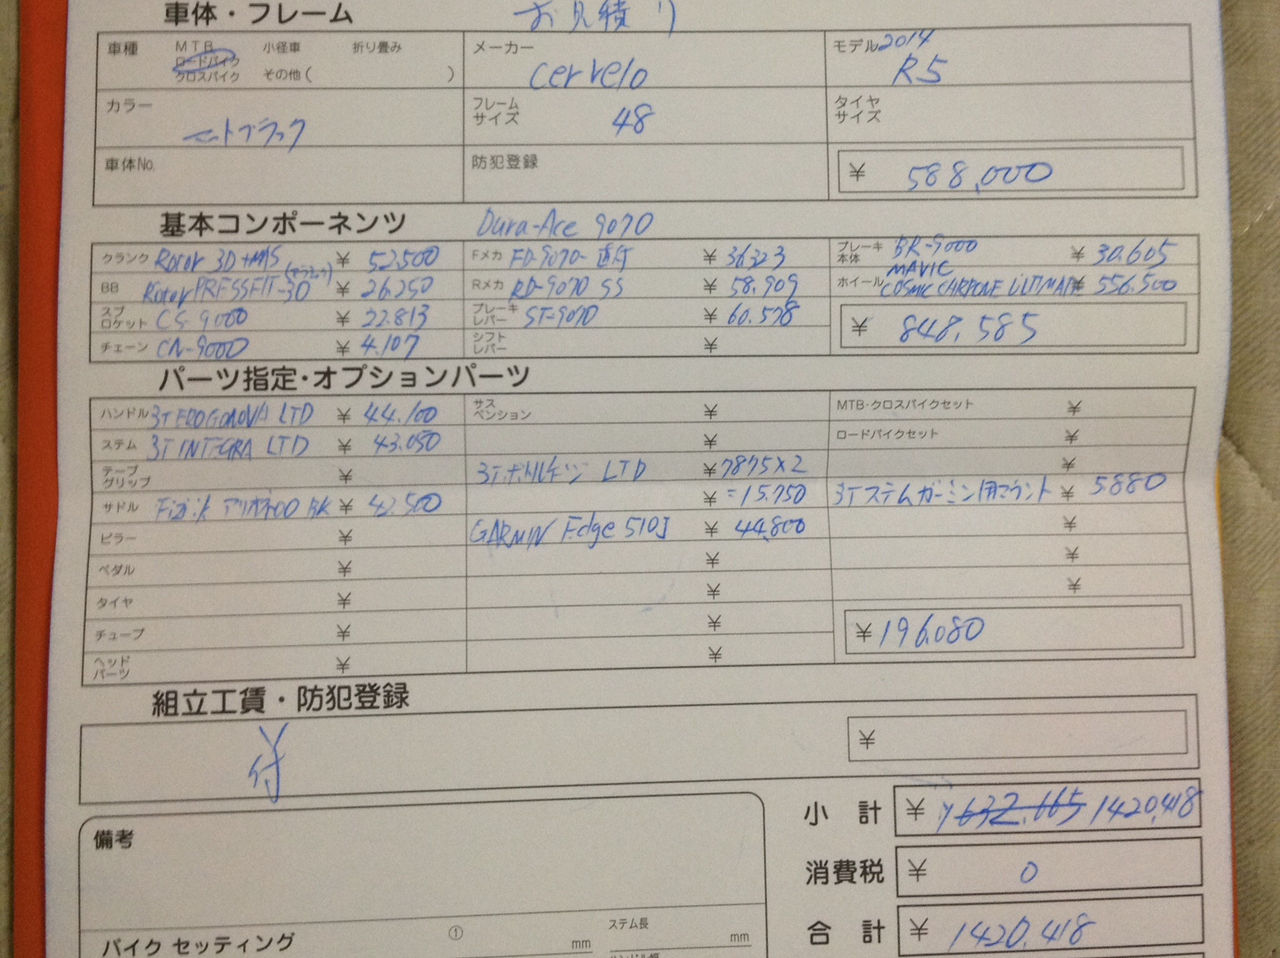 車体・フレーム お見積り
車種 MTB ロードバイク クロスバイク 小径車 折り畳み その他( )
メーカー cervelo
モデル 2014 R5
カラー マットブラック
フレームサイズ 48
タイヤサイズ
車体No.
防犯登録
¥ 588,000
基本コンポーネンツ Dura-Ace 9070
クランク Rotor 3D+MAS ¥ 52.500
Fメカ FD-9070-直付 ¥ 36323
ブレーキ本体 BR-9000 ¥ 30.605
BB Rotor PRESSFIT-3D ¥ 26.250
Rメカ RD-9070 SS ¥ 58.909
ホイール MAVIC COSMIC CARBONE ULTIMATE ¥ 556.500
スプロケット CS-9000 ¥ 22.813
ブレーキレバー ST-9070 ¥ 60.578
¥ 848,585
チェーン CN-9000 ¥ 4.107
シフトレバー ¥
パーツ指定・オプションパーツ
ハンドル 3T ERGONOVA LTD ¥ 44.100
サスペンション ¥
MTB・クロスバイクセット ¥
ステム 3T INTEGRA LTD ¥ 43.050
¥
ロードバイクセット ¥
テープグリップ ¥
3Tボトルケージ LTD ¥ 7875×2
¥
サドル Fizi:k アリオネ00 BK ¥ 42.500
¥ =15.750
3Tステムガーミン用マウント ¥ 5880
ピラー ¥
GARMIN Edge 510J ¥ 44.800
¥
ペダル ¥
¥
¥
タイヤ ¥
¥
¥
チューブ ¥
¥
¥ 196.080
ヘッドパーツ ¥
¥
組立工賃・防犯登録
付
¥
小計 ¥ 1632.665 1420.418
備考
消費税 ¥ 0
合計 ¥ 1420.418
バイク セッティング ① mm
ステム長 mm